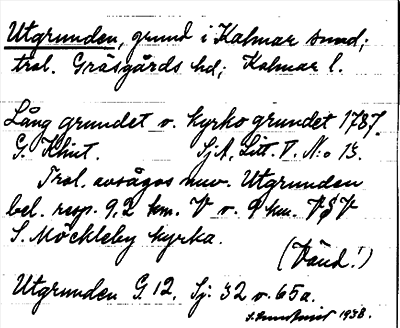 Utgrunden, grund i Kalmar sund;
trol. Gräsgårds hd; Kalmar l.
Lång grundet o. kyrko grundet 1787
G. Klint. SjA, Litt. T. N:o 13.
Trol. avsågos nuv. Utgrunden
bel. resp. 9.2 km. V o. 9 km. VSV
S. Möckleby kyrka.
(Vänd!)
Utgrunden G 12. Sj. 32 o. 65a.
1938.